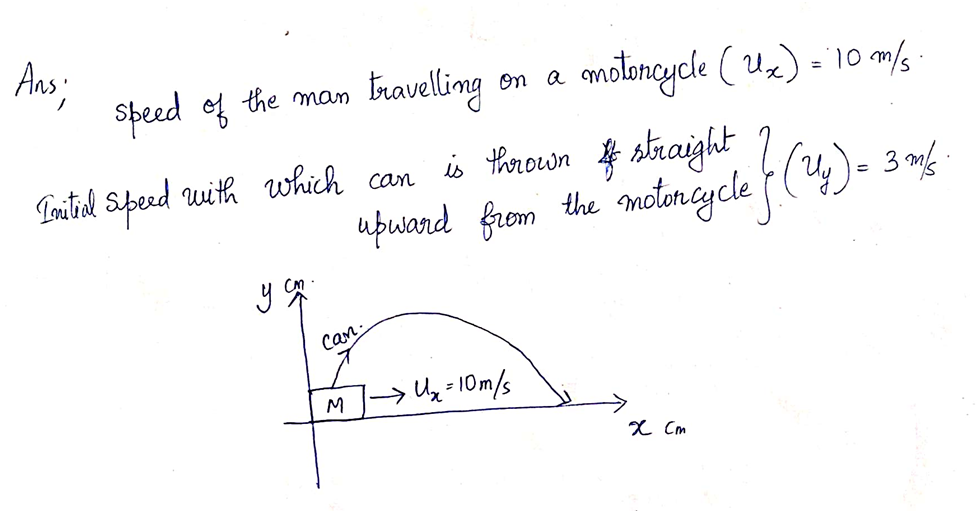 Ans;
Speed of the man travelling on a motorcycle (Ux) = 10 m/s.
Initial speed with which can is thrown straight
upward from the motorcycle } (Uy) = 3 m/s.
y cm.
can.
M → Ux = 10 m/s
x cm